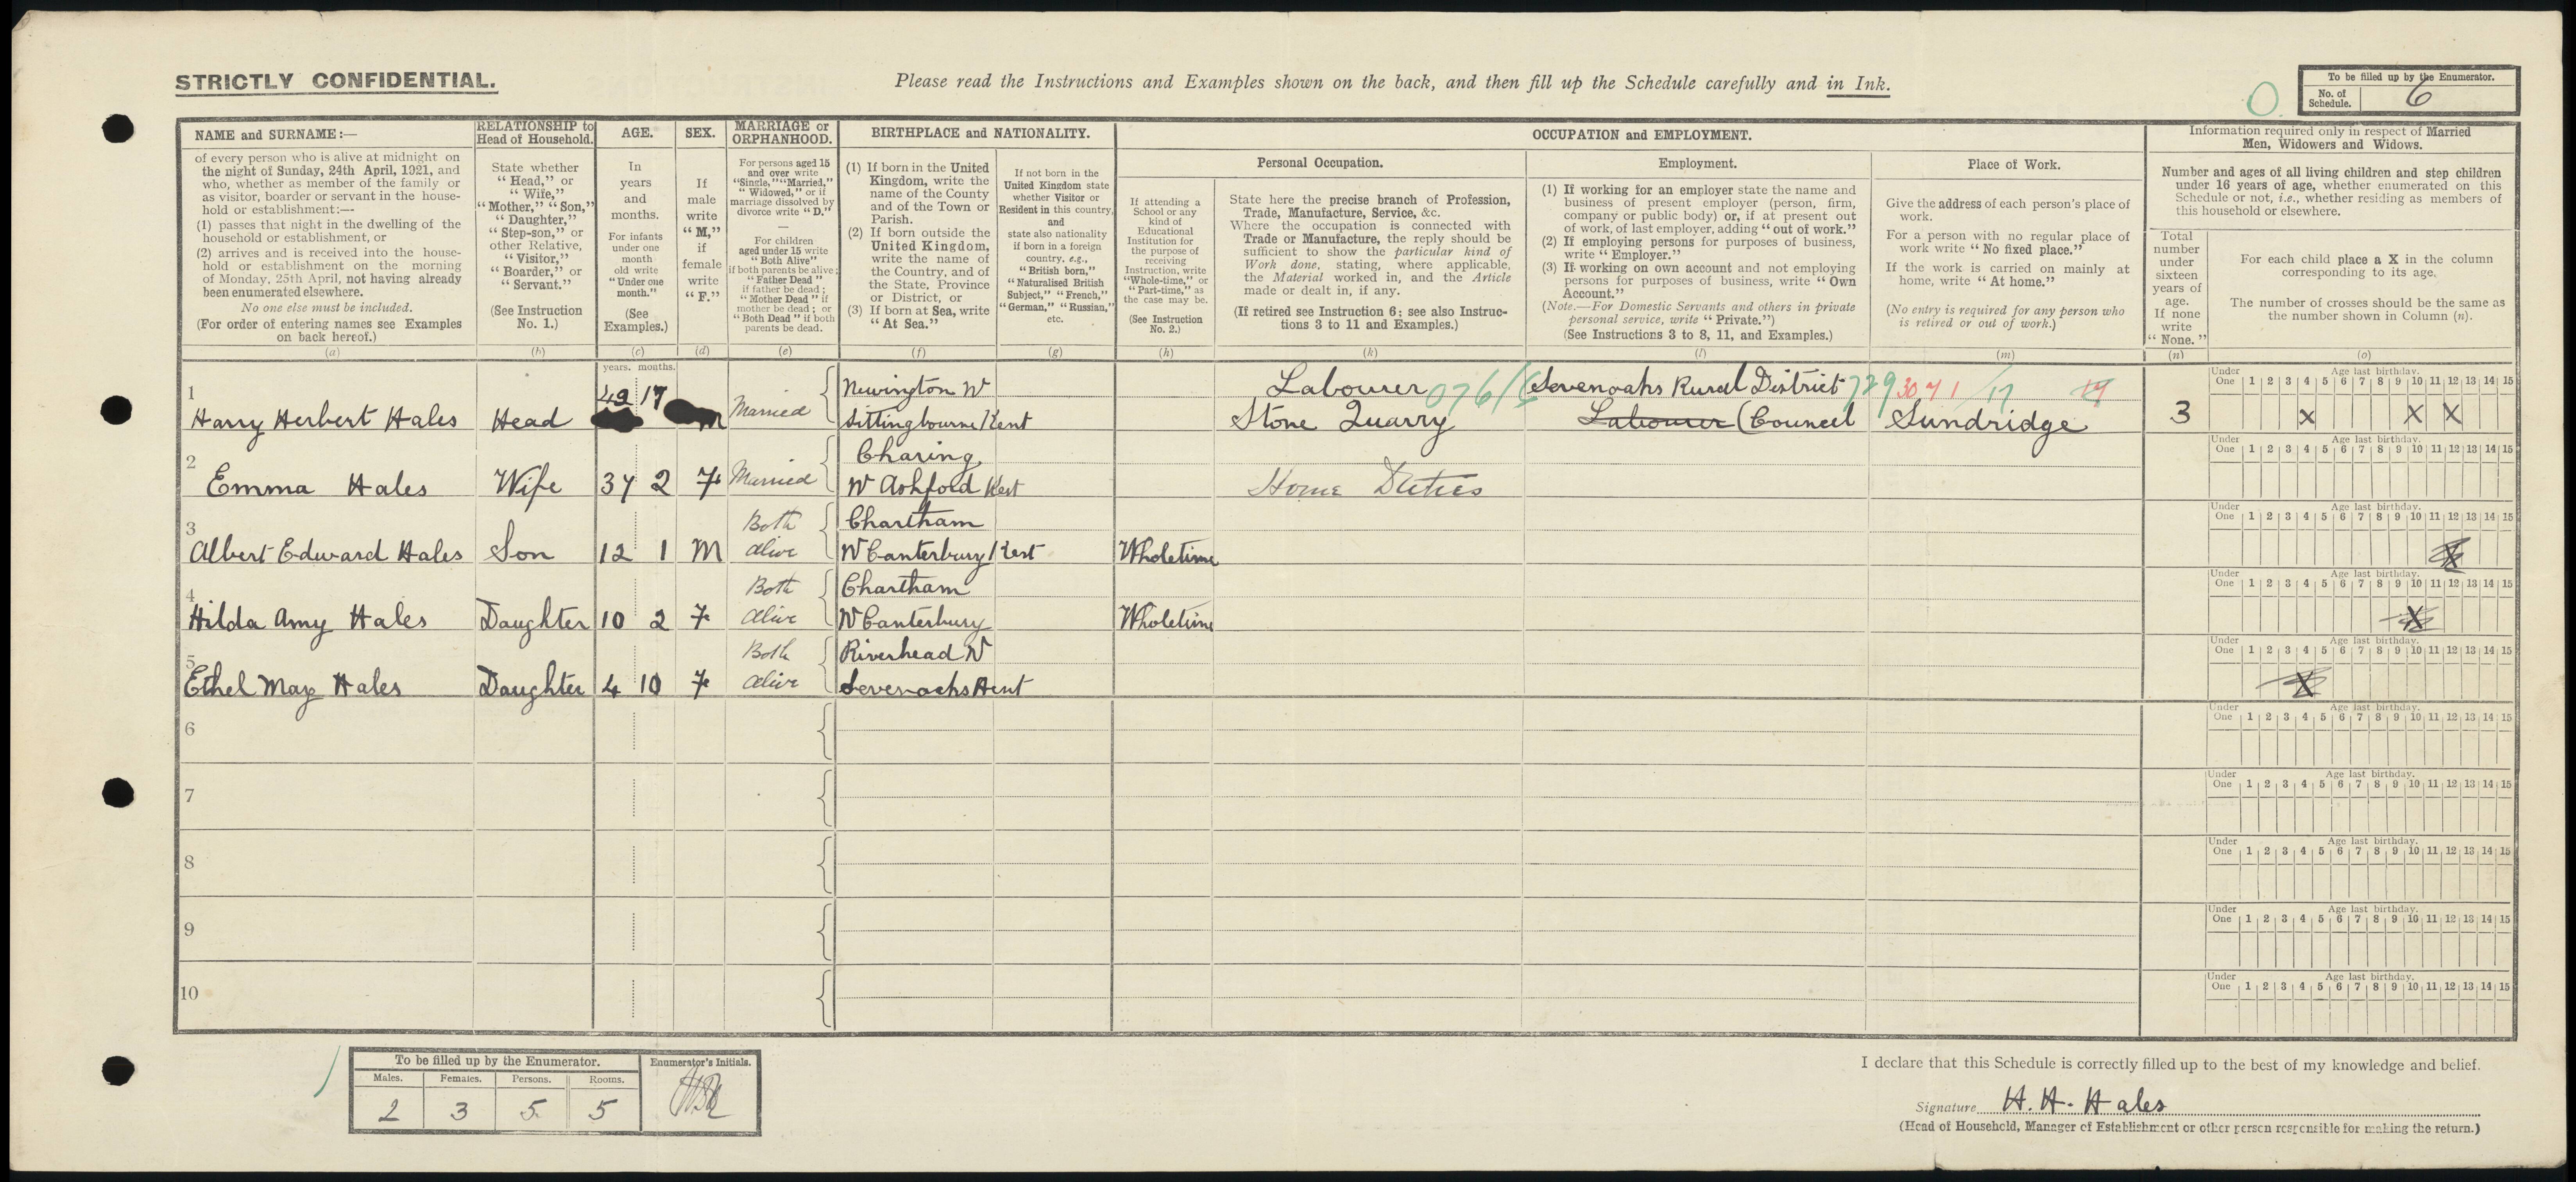 STRICTLY CONFIDENTIAL.
Please read the Instructions and Examples shown on the back, and then fill up the Schedule carefully and in Ink.
To be filled up by the Enumerator.
No. of Schedule. 6
NAME and SURNAME:—
of every person who is alive at midnight on
the night of Sunday, 24th April, 1921, and
who, whether as member of the family or
as visitor, boarder or servant in the house-
hold or establishment:—
(1) passes that night in the dwelling of the
household or establishment, or
(2) arrives and is received into the house-
hold or establishment on the morning
of Monday, 25th April, not having already
been enumerated elsewhere.
No one else must be included.
(For order of entering names see Examples
on back hereof.)
(a)
RELATIONSHIP to
Head of Household.
State whether
"Head," or
"Wife,"
"Mother," "Son,"
"Daughter,"
"Step-son," or
other Relative,
"Visitor,"
"Boarder," or
"Servant."
(See Instruction
No. 1.)
(b)
AGE.
In
years
and
months.
For infants
under one
month
old write
"Under one
month."
(See
Examples.)
(c)
SEX.
If
male
write
"M,"
if
female
write
"F."
(d)
MARRIAGE or
ORPHANHOOD.
For persons aged 15
and over write
"Single," "Married,"
"Widowed," or if
marriage dissolved by
divorce write "D."
—
For children
aged under 15 write
"Both Alive"
if both parents be alive;
"Father Dead"
if father be dead;
"Mother Dead" if
mother be dead; or
"Both Dead" if both
parents be dead.
(e)
BIRTHPLACE and NATIONALITY.
(1) If born in the United
Kingdom, write the
name of the County
and of the Town or
Parish.
(2) If born outside the
United Kingdom,
write the name of
the Country, and of
the State, Province
or District, or
(3) If born at Sea, write
"At Sea."
(f)
If not born in the
United Kingdom state
whether Visitor or
Resident in this country,
and
state also nationality
if born in a foreign
country, e.g.,
"British born,"
"Naturalised British
Subject," "French,"
"German," "Russian,"
etc.
(g)
OCCUPATION and EMPLOYMENT.
If attending a
School or any
kind of
Educational
Institution for
the purpose of
receiving
Instruction, write
"Whole-time," or
"Part-time," as
the case may be.
(See Instruction
No. 2.)
(h)
Personal Occupation.
State here the precise branch of Profession,
Trade, Manufacture, Service, &c.
Where the occupation is connected with
Trade or Manufacture, the reply should be
sufficient to show the particular kind of
Work done, stating, where applicable,
the Material worked in, and the Article
made or dealt in, if any.
(If retired see Instruction 6; see also Instruc-
tions 3 to 11 and Examples.)
(k)
Employment.
(1) If working for an employer state the name and
business of present employer (person, firm,
company or public body) or, if at present out
of work, of last employer, adding "out of work."
(2) If employing persons for purposes of business,
write "Employer."
(3) If working on own account and not employing
persons for purposes of business, write "Own
Account."
(Note.—For Domestic Servants and others in private
personal service, write "Private.")
(See Instructions 3 to 8, 11, and Examples.)
(l)
Place of Work.
Give the address of each person's place of
work.
For a person with no regular place of
work write "No fixed place."
If the work is carried on mainly at
home, write "At home."
(No entry is required for any person who
is retired or out of work.)
(m)
Information required only in respect of Married
Men, Widowers and Widows.
Number and ages of all living children and step children
under 16 years of age, whether enumerated on this
Schedule or not, i.e., whether residing as members of
this household or elsewhere.
Total
number
under
sixteen
years of
age.
If none
write
"None."
(n)
For each child place a X in the column
corresponding to its age.
The number of crosses should be the same as
the number shown in Column (n).
(o)
years. months.
1 Harry Herbert Hales Head 49 M Married Newington Nr Sittingbourne Kent Labourer Stone Quarry Sevenoaks Rural District Labourer (Council Sundridge 3 X X X
Under One 1 2 3 4 5 6 7 8 9 10 11 12 13 14 15
Age last birthday.
076/6 729 3071/17
2 Emma Hales Wife 37 2 F Married Charing Nr Ashford Kent Home Duties
Under One 1 2 3 4 5 6 7 8 9 10 11 12 13 14 15
Age last birthday.
3 Albert Edward Hales Son 12 1 M Both Alive Chartham Nr Canterbury Kent Wholetime X
Under One 1 2 3 4 5 6 7 8 9 10 11 12 13 14 15
Age last birthday.
4 Hilda Amy Hales Daughter 10 2 F Both Alive Chartham Nr Canterbury Wholetime X
Under One 1 2 3 4 5 6 7 8 9 10 11 12 13 14 15
Age last birthday.
5 Ethel May Hales Daughter 4 10 F Both Alive Riverhead Nr Sevenoaks Kent X
Under One 1 2 3 4 5 6 7 8 9 10 11 12 13 14 15
Age last birthday.
6
Under One 1 2 3 4 5 6 7 8 9 10 11 12 13 14 15
Age last birthday.
7
Under One 1 2 3 4 5 6 7 8 9 10 11 12 13 14 15
Age last birthday.
8
Under One 1 2 3 4 5 6 7 8 9 10 11 12 13 14 15
Age last birthday.
9
Under One 1 2 3 4 5 6 7 8 9 10 11 12 13 14 15
Age last birthday.
10
Under One 1 2 3 4 5 6 7 8 9 10 11 12 13 14 15
Age last birthday.
To be filled up by the Enumerator.
Males. Females. Persons. Rooms.
2 3 5 5
Enumerator's Initials.
I declare that this Schedule is correctly filled up to the best of my knowledge and belief.
Signature H. H. Hales
(Head of Household, Manager of Establishment or other person responsible for making the return.)